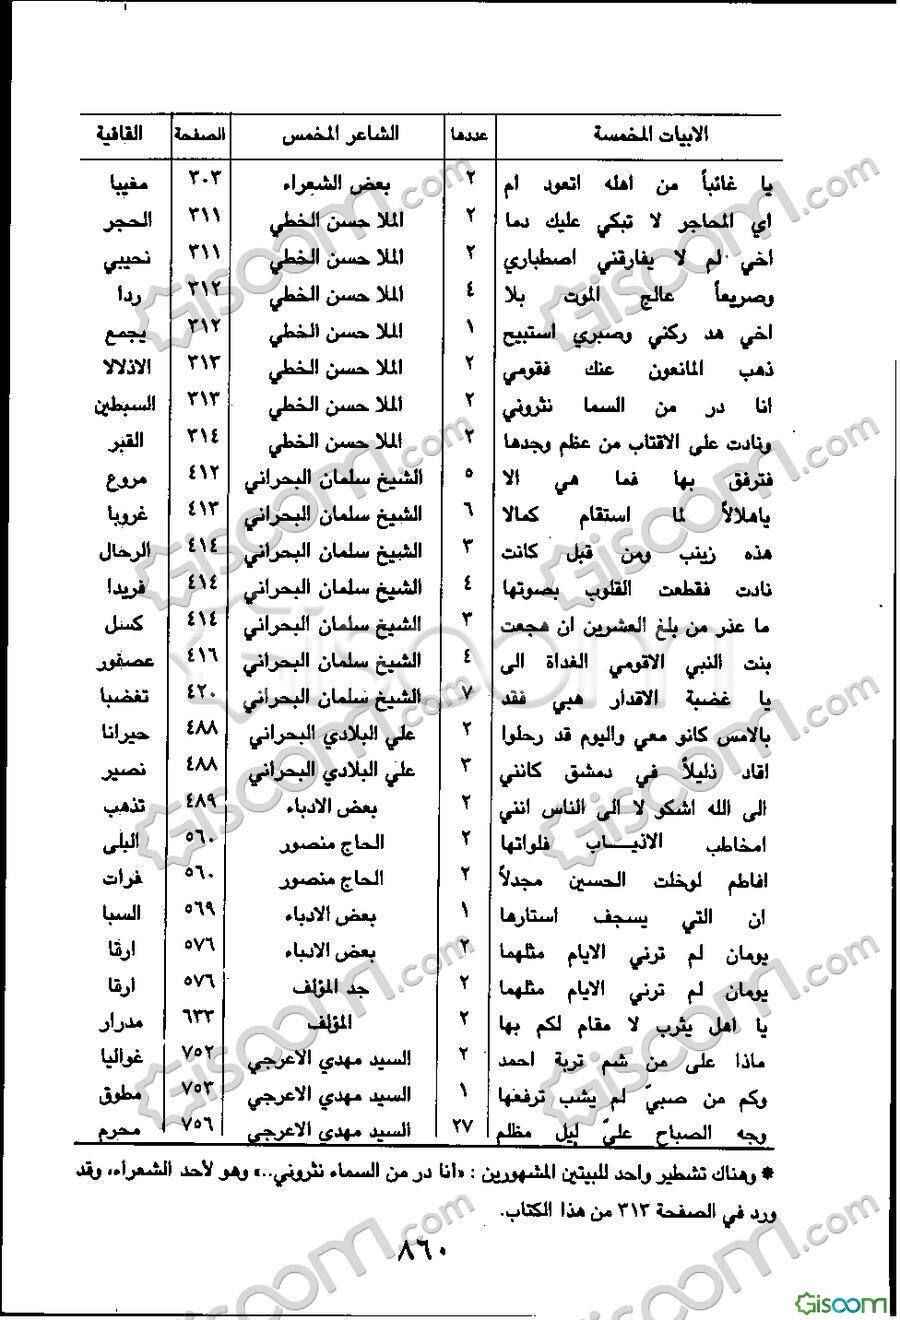 الابيات المخمسة عددها الشاعر المخمس الصفحة القافية
يا غائباً من اهله اتعود ام ٢ بعض الشعراء ٣٠٣ مغيبا
اي المحاجر لا تبكي عليك دما ٢ الملا حسن الخطي ٣١١ الحجر
اخي لم لا يفارقني اصطباري ٢ الملا حسن الخطي ٣١١ نحيبي
وصريعاً عالج الموت بلا ٤ الملا حسن الخطي ٣١٢ ردا
اخي هد ركني وصبري استبيح ١ الملا حسن الخطي ٣١٢ يجمع
ذهب المانعون عنك فقومي ٢ الملا حسن الخطي ٣١٣ الاذلالا
انا در من السما نثروني ٢ الملا حسن الخطي ٣١٣ السبطين
ونادت على الاقتاب من عظم وجدها ٢ الملا حسن الخطي ٣١٤ القبر
فترفق بها فما هي الا ٥ الشيخ سلمان البحراني ٤١٢ مروع
ياهلالاً لما استقام كمالا ٦ الشيخ سلمان البحراني ٤١٣ غروبا
هذه زينب ومن قبل كانت ٣ الشيخ سلمان البحراني ٤١٤ الرحال
نادت فقطعت القلوب بصوتها ٤ الشيخ سلمان البحراني ٤١٤ فريدا
ما عذر من بلغ العشرين ان هجعت ٣ الشيخ سلمان البحراني ٤١٤ كسل
بنت النبي الاقومي الغداة الى ٤ الشيخ سلمان البحراني ٤١٦ عصفور
يا غضبة الاقدار هبي فقد ٧ الشيخ سلمان البحراني ٤٢٠ تغضبا
بالامس كانو معي واليوم قد رحلوا ٢ علي البلادي البحراني ٤٨٨ حيرانا
اقاد ذليلاً في دمشق كانني ٣ علي البلادي البحراني ٤٨٨ نصير
الى الله اشكو لا الى الناس انني ٢ بعض الادباء ٤٨٩ تذهب
امخاطب الاذيـــاب فلواتها ٢ الحاج منصور ٥٦٠ البلى
افاطم لوخلت الحسين مجدلاً ٢ الحاج منصور ٥٦٠ فرات
ان التي يسجف استارها ١ بعض الادباء ٥٦٩ السبا
يومان لم ترني الايام مثلهما ٢ بعض الادباء ٥٧٦ ارقا
يومان لم ترني الايام مثلهما ٢ جد المؤلف ٥٧٦ ارقا
يا اهل يثرب لا مقام لكم بها ٢ المؤلف ٦٣٣ مدرار
ماذا على من شم تربة احمد ٢ السيد مهدي الاعرجي ٧٥٢ غواليا
وكم من صبيّ لم يشب ترفعها ١ السيد مهدي الاعرجي ٧٥٣ مطوق
وجه الصباح عليّ ليل مظلم ٢٧ السيد مهدي الاعرجي ٧٥٦ محرم
* وهناك تشطير واحد للبيتين المشهورين : «انا در من السماء نثروني..» وهو لأحد الشعراء، وقد
ورد في الصفحة ٣١٣ من هذا الكتاب.
٨٦٠
Gisoom